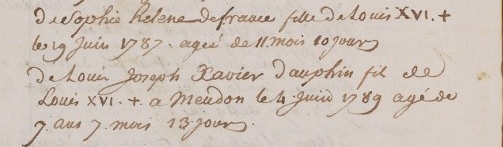 de Sophie helene de france fille de Louis XVI. +
le 19 Juin 1787. ageé de 11. mois 10 jours
de Louis Joseph Xavier Dauphin fil de
Louis XVI. + a Meudon le 4 Juin 1789 agé de
7 ans 7 mois 13 jours.